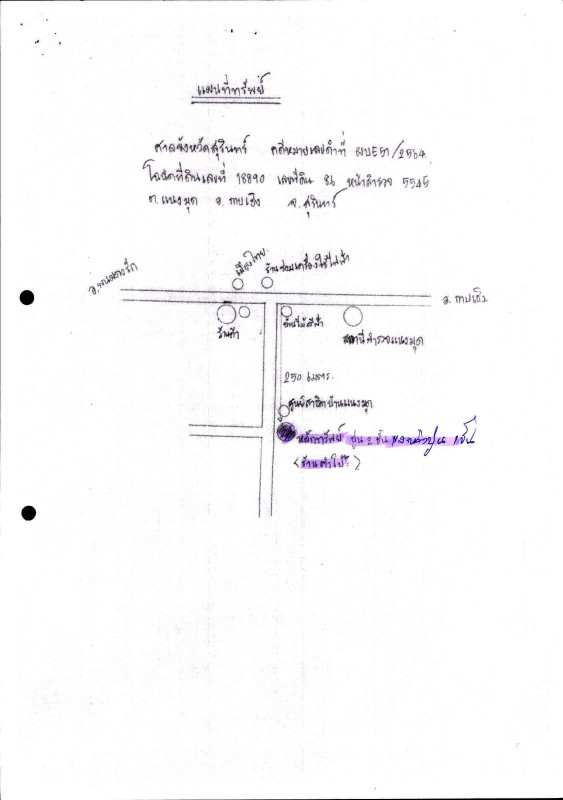 แผนที่ทรัพย์
ศาลจังหวัดสุรินทร์ คดีหมายเลขดำที่ ผบE51/2564
โฉนดที่ดินเลขที่ 18890 เลขที่ดิน 86 หน้าสำรวจ 5545
ต.แนงมุด อ.กาบเชิง จ.สุรินทร์
เมืองไทย.
ร้านซ่อมเครื่องใช้ไฟฟ้า
อ.พนมดงรัก
อ.กาบเชิง
ร้านค้า
สถานีตำรวจแนงมุด
250 เมตร.
ศูนย์สาธิตบ้านแนงมุด
หลักทรัพย์ ปูน 2 ชั้น